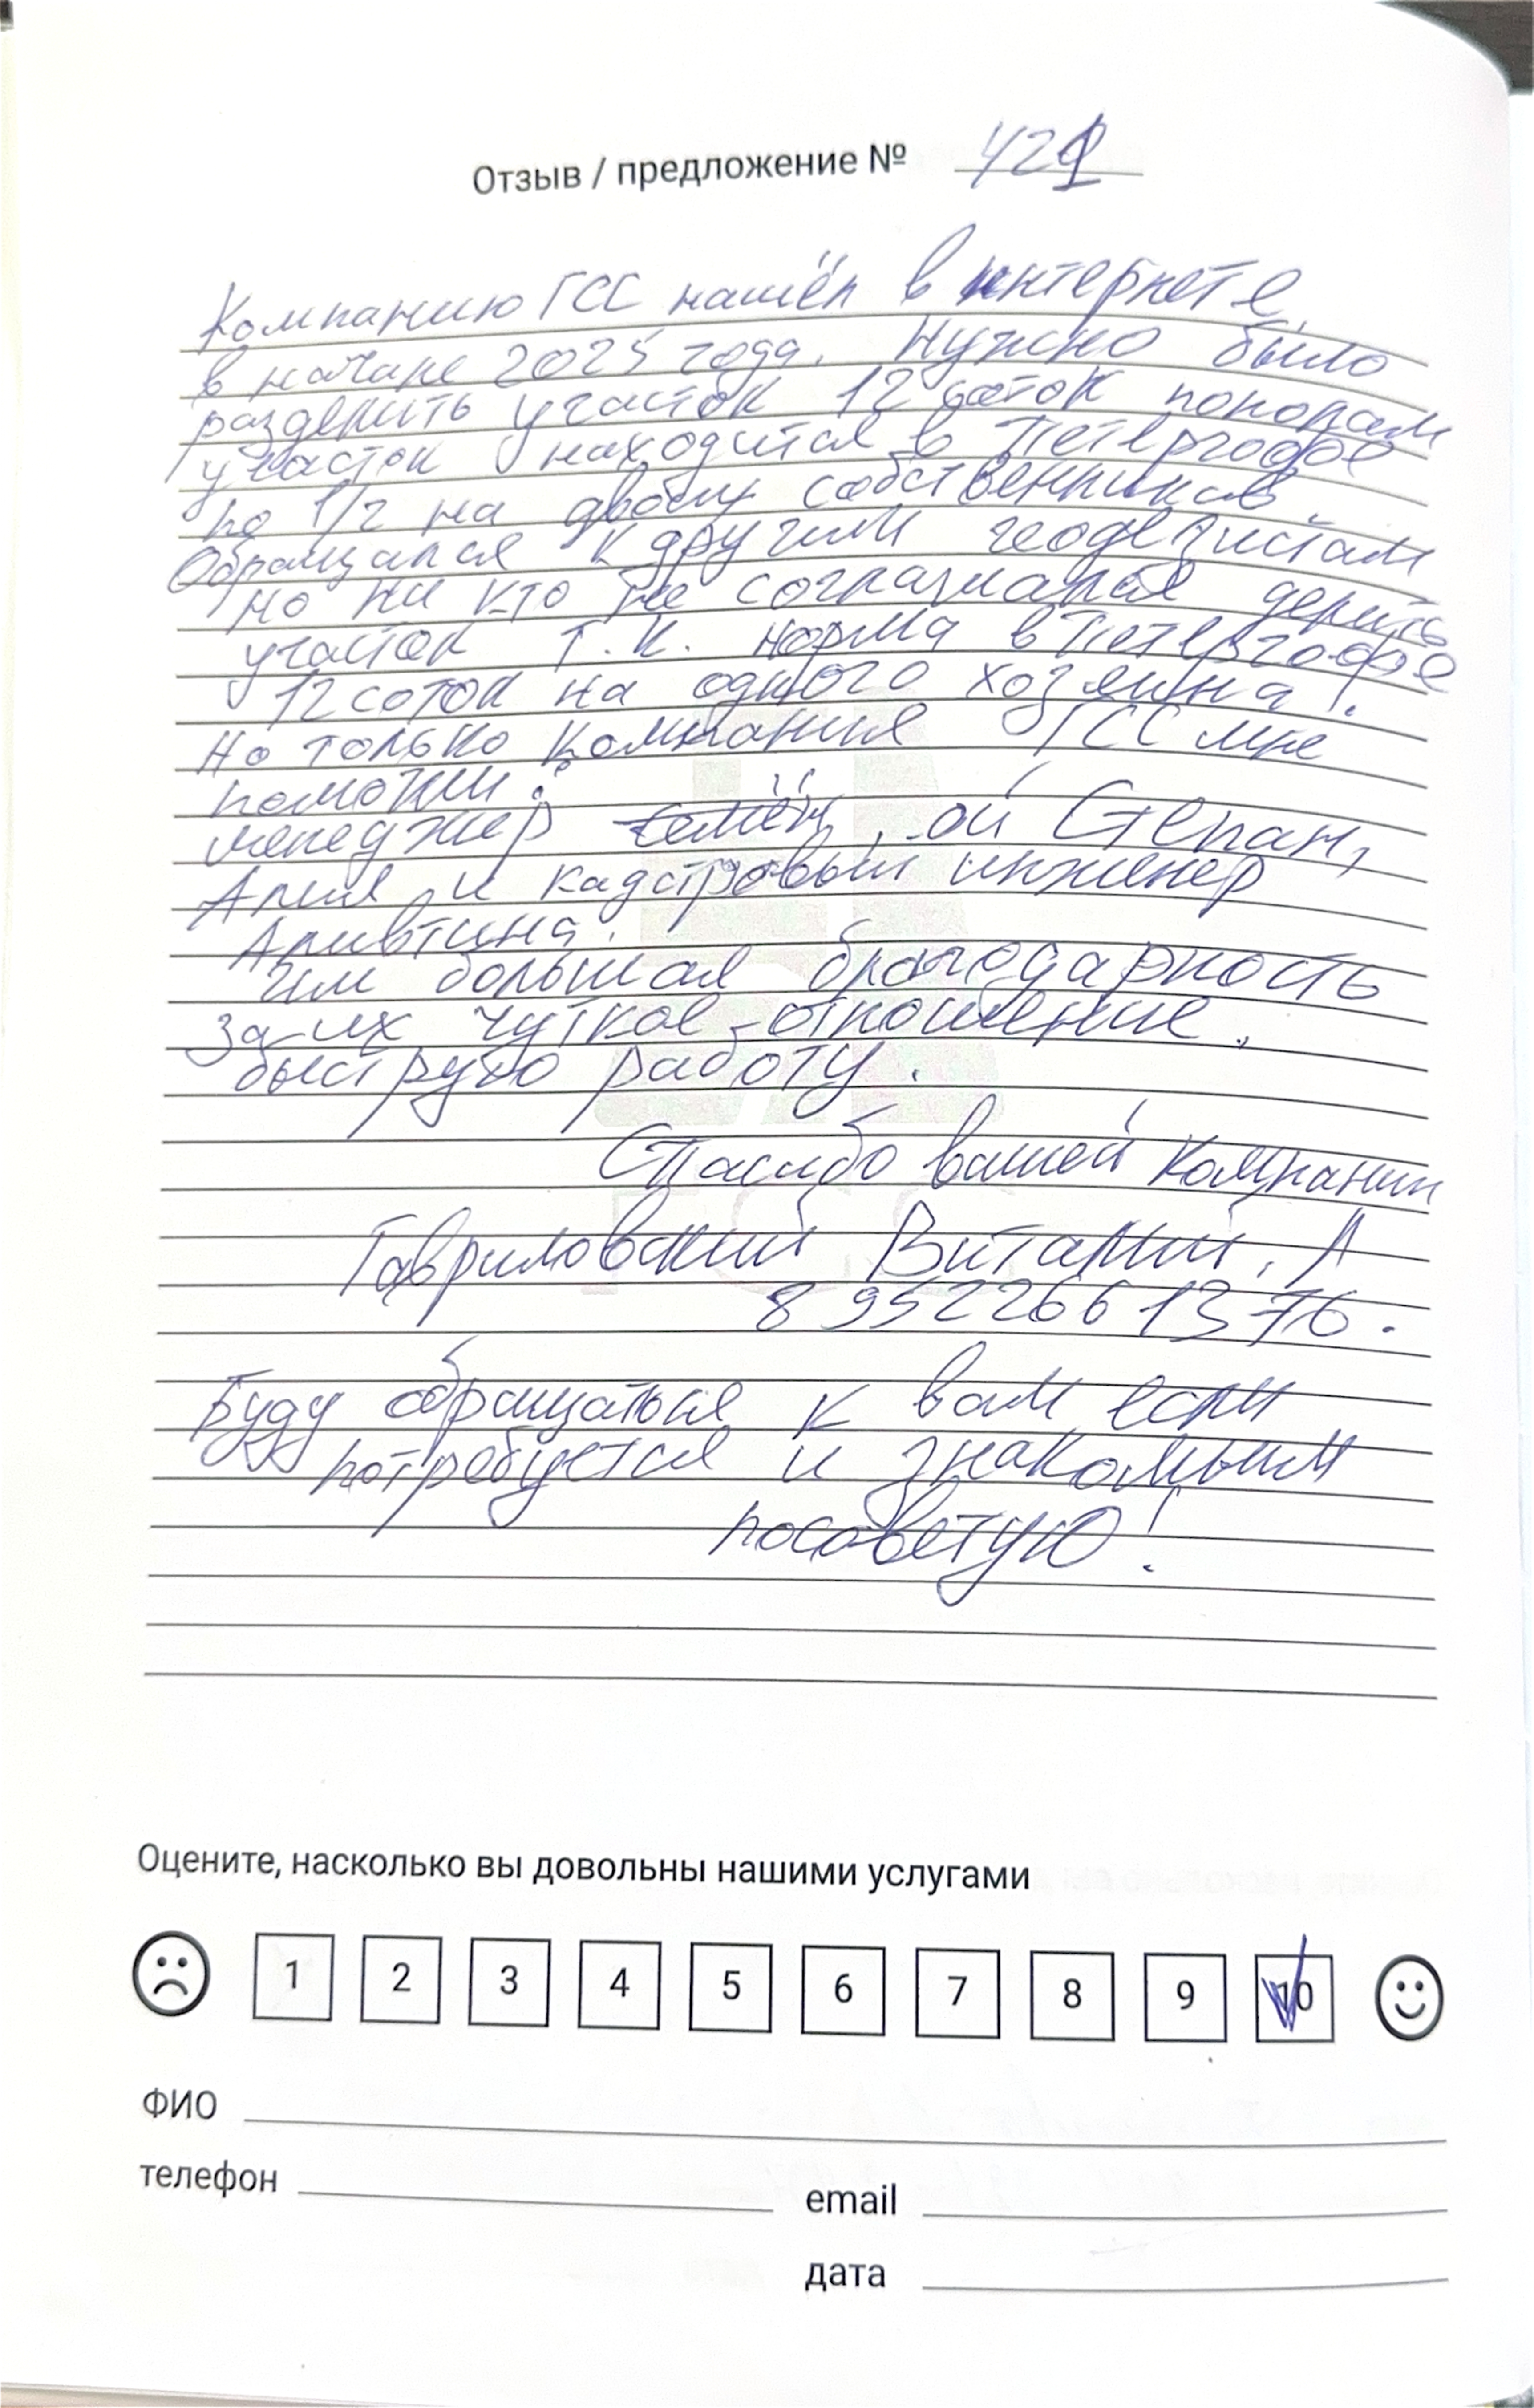 Отзыв / предложение № 421
Компанию ГСС нашёл в интернете,
в начале 2025 года. Нужно было
разделить участок 12 соток пополам
участок находится в Петергофе
по 1/2 на двоих собственников.
Обращался к другим геодезистам
но ни кто не соглашался делить
участок т.к. норма в Петергофе
12 соток на одного хозяина!.
Но только компания ГСС мне
помогли!
менеджер Семён, ой Степан,
Алия и кадстровый инженер
Аливтина.
им большая благодарность
за их чуткое - отношение,
быструю работу.
Спасибо вашей компании
Гавриловский Виталий, А
8 952 266 13 76.
Буду обращаться к вам если
потребуется и знакомым
посоветую!
Оцените, насколько вы довольны нашими услугами
1 2 3 4 5 6 7 8 9 10
ФИО
телефон email
дата
ГСС